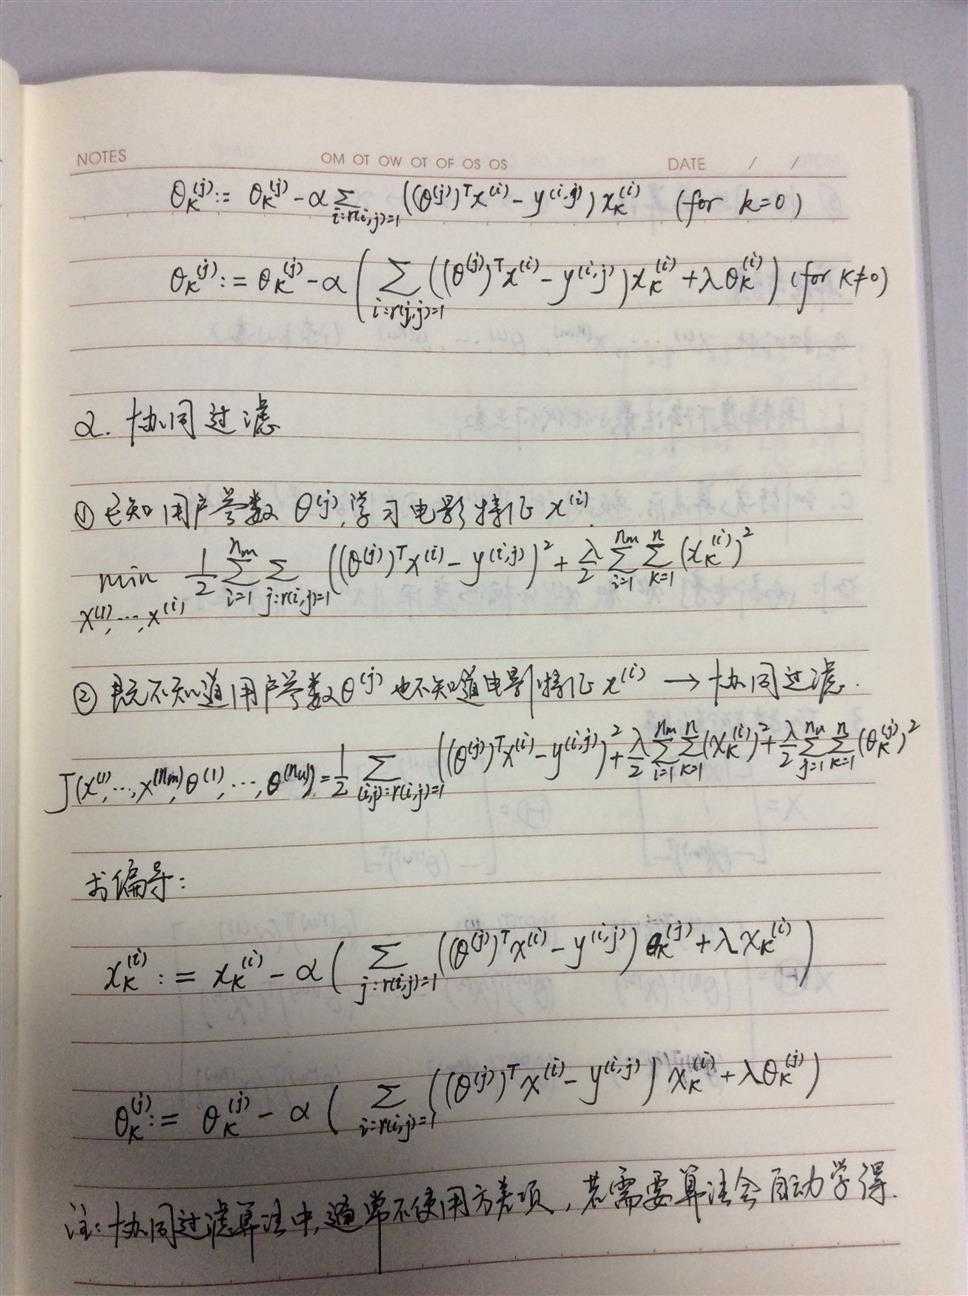 NOTES OM OT OW OT OF OS OS DATE / /
θ_K^(j) := θ_K^(j) - α Σ_{i:r(i,j)=1} ((θ^(j))^T x^(i) - y^(i,j)) x_K^(i) (for k=0)
θ_K^(j) := θ_K^(j) - α ( Σ_{i:r(j,j)=1} ((θ^(j))^T x^(i) - y^(i,j)) x_K^(i) + λθ_K^(i) ) (for K≠0)
2. 协同过滤
① 已知用户参数 θ^(j),学习电影特征 x^(i).
min_{x^(1),...,x^(i)} 1/2 Σ_{i=1}^{n_m} Σ_{j:r(i,j)=1} ((θ^(j))^T x^(i) - y^(i,j))^2 + λ/2 Σ_{i=1}^{n_m} Σ_{k=1}^{n} (x_K^(i))^2
② 既不知道用户参数θ^(j) 也不知道电影特征 x^(i) → 协同过滤.
J(x^(1),...,x^(n_m),θ^(1),...,θ^(n_u)) = 1/2 Σ_{(i,j):r(i,j)=1} ((θ^(j))^T x^(i) - y^(i,j))^2 + λ/2 Σ_{i=1}^{n_m} Σ_{k=1}^{n} (x_K^(i))^2 + λ/2 Σ_{j=1}^{n_u} Σ_{k=1}^{n} (θ_K^(j))^2
求偏导:
x_K^(i) := x_K^(i) - α ( Σ_{j:r(i,j)=1} ((θ^(j))^T x^(i) - y^(i,j)) θ_K^(j) + λx_K^(i) )
θ_K^(j) := θ_K^(j) - α ( Σ_{i:r(i,j)=1} ((θ^(j))^T x^(i) - y^(i,j)) x_K^(i) + λθ_K^(j) )
注:协同过滤算法中,通常不使用方差项,若需要算法会自动学得.